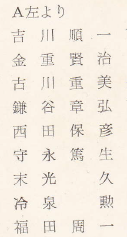 A左より
吉川順一
金重賢治
古川重美
鎌谷章弘
西田保彦
守永篤生
末光久
冷泉勲
福田周一